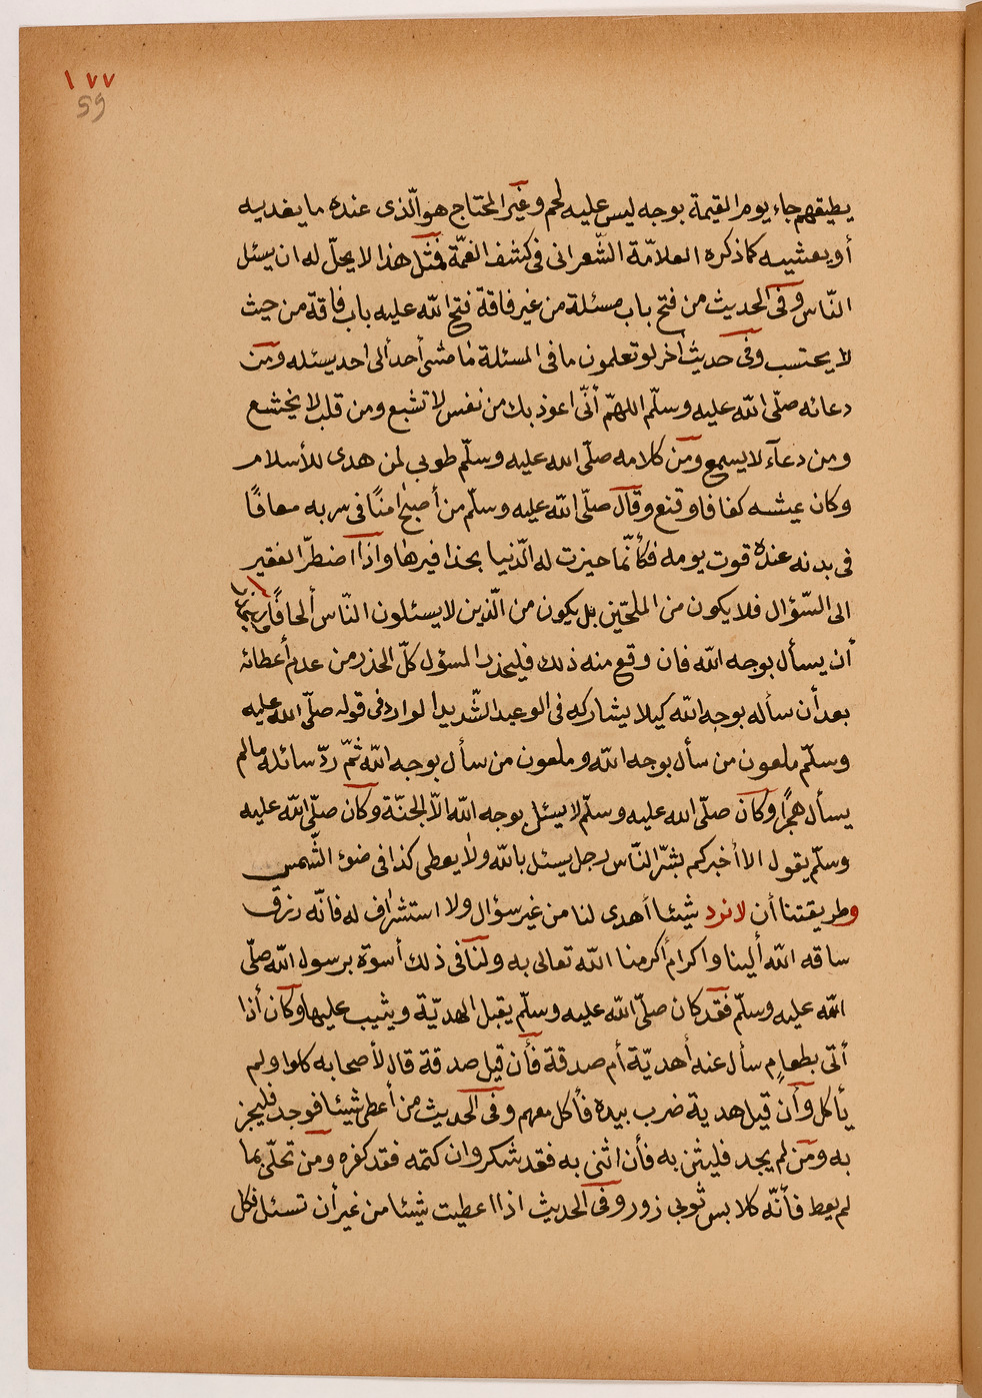 ١٧٧
59
يطيقهم جاء يوم القيمة بوجه ليس عليه لحم وغير المحتاج هو الّذى عنده ما يغديه
أو يعشيه كما ذكره العلامّة الشّعرانى فى كشف الغمّة فمثل هذا لا يحلّ له ان يسئل
النّاس وفى الحديث من فتح باب مسئلة من غير فاقة فتح الله عليه باب فاقة من حيث
لا يحتسب وفى حديث آخر لو تعلمون ما فى المسئلة ما مشى أحد ألى احد يسئله ومن
دعائه صلّى الله عليه وسلّم اللهمّ أنّى اعوذ بك من نفس لا تشبع ومن قلب لا يخشع
ومن دعآء لا يسمع ومن كلامه صلّى الله عليه وسلّم طوبى لمن هدى للأسلام
وكان عيشه كفافا وقنع وقال صلّى الله عليه وسلّم من أصبح امنًا فى سربه معافًا
فى بدنه عنده قوت يومه فكأنّما حيزت له الدّنيا بحذافيرها واذا اضطرّ الفقير
الى السّؤال فلا يكون من الملحّين بل يكون من الّذين لا يسئلون النّاس ألحافًا
أن يسأل بوجه الله فان وقع منه ذلك فليحذر المسؤل كلّ الحذر من عدم أعطائه
بعد أن سأله بوجه الله كيلا يشاركه فى الوعيد الشّديد الوارد فى قوله صلّى الله عليه
وسلّم ملعون من سأل بوجه الله وملعون من سأل بوجه الله ثمّ ردّ سائله مالم
يسأل هجرًا وكان صلّى الله عليه وسلّم لا يسئل بوجه الله الّا الجنّة وكان صلّى الله عليه
وسلّم يقول الا أخبركم بشرّ النّاس رجل يسئل بالله ولا يعطى كذا فى ضوئ الشّمس
وطريقتنا أن لا نرد شيئا أهدى لنا من غير سؤال ولا استشراف له فانّه رزق
ساقه الله ألينا واكرام أكرمنا الله تعالى به ولنا فى ذلك أسوة برسول الله صلّى
الله عليه وسلّم فقد كان صلّى الله عليه وسلّم يقبل الهديّة ويثيب عليها وكان أذا
أتى بطعامٍ سأل عنه أهديّة أم صدقة فأن قيل صدقة قال لأصحابه كلوا ولم
يأكل وأن قيل هدية ضرب بيده فأكل معهم وفى الحديث من أعطى شيئا فوجد فليجز
به ومن لم يجد فليثن به فأن اثنى به فقد شكر وان كتمه فقد كفره ومن تحلّى بما
لم يعط فأنّه كلابس ثوبى زور وفى الحديث اذا اعطيت شيئا من غير أن تسئل فكل